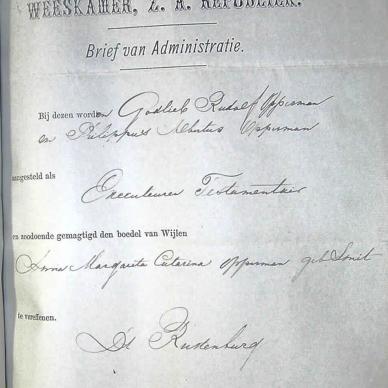 WEESKAMER, Z. A. REPUBLIEK.
Brief van Administratie.
Bij dezen worden Godlieb Rudolf Opperman
en Philippus Albertus Opperman
aangesteld als
Executeuren Testamentair
en zoodoende gemagtigd den boedel van Wijlen
Anna Margarita Catarina Opperman geb Smit
te vereffenen.
Dt Rustenburg